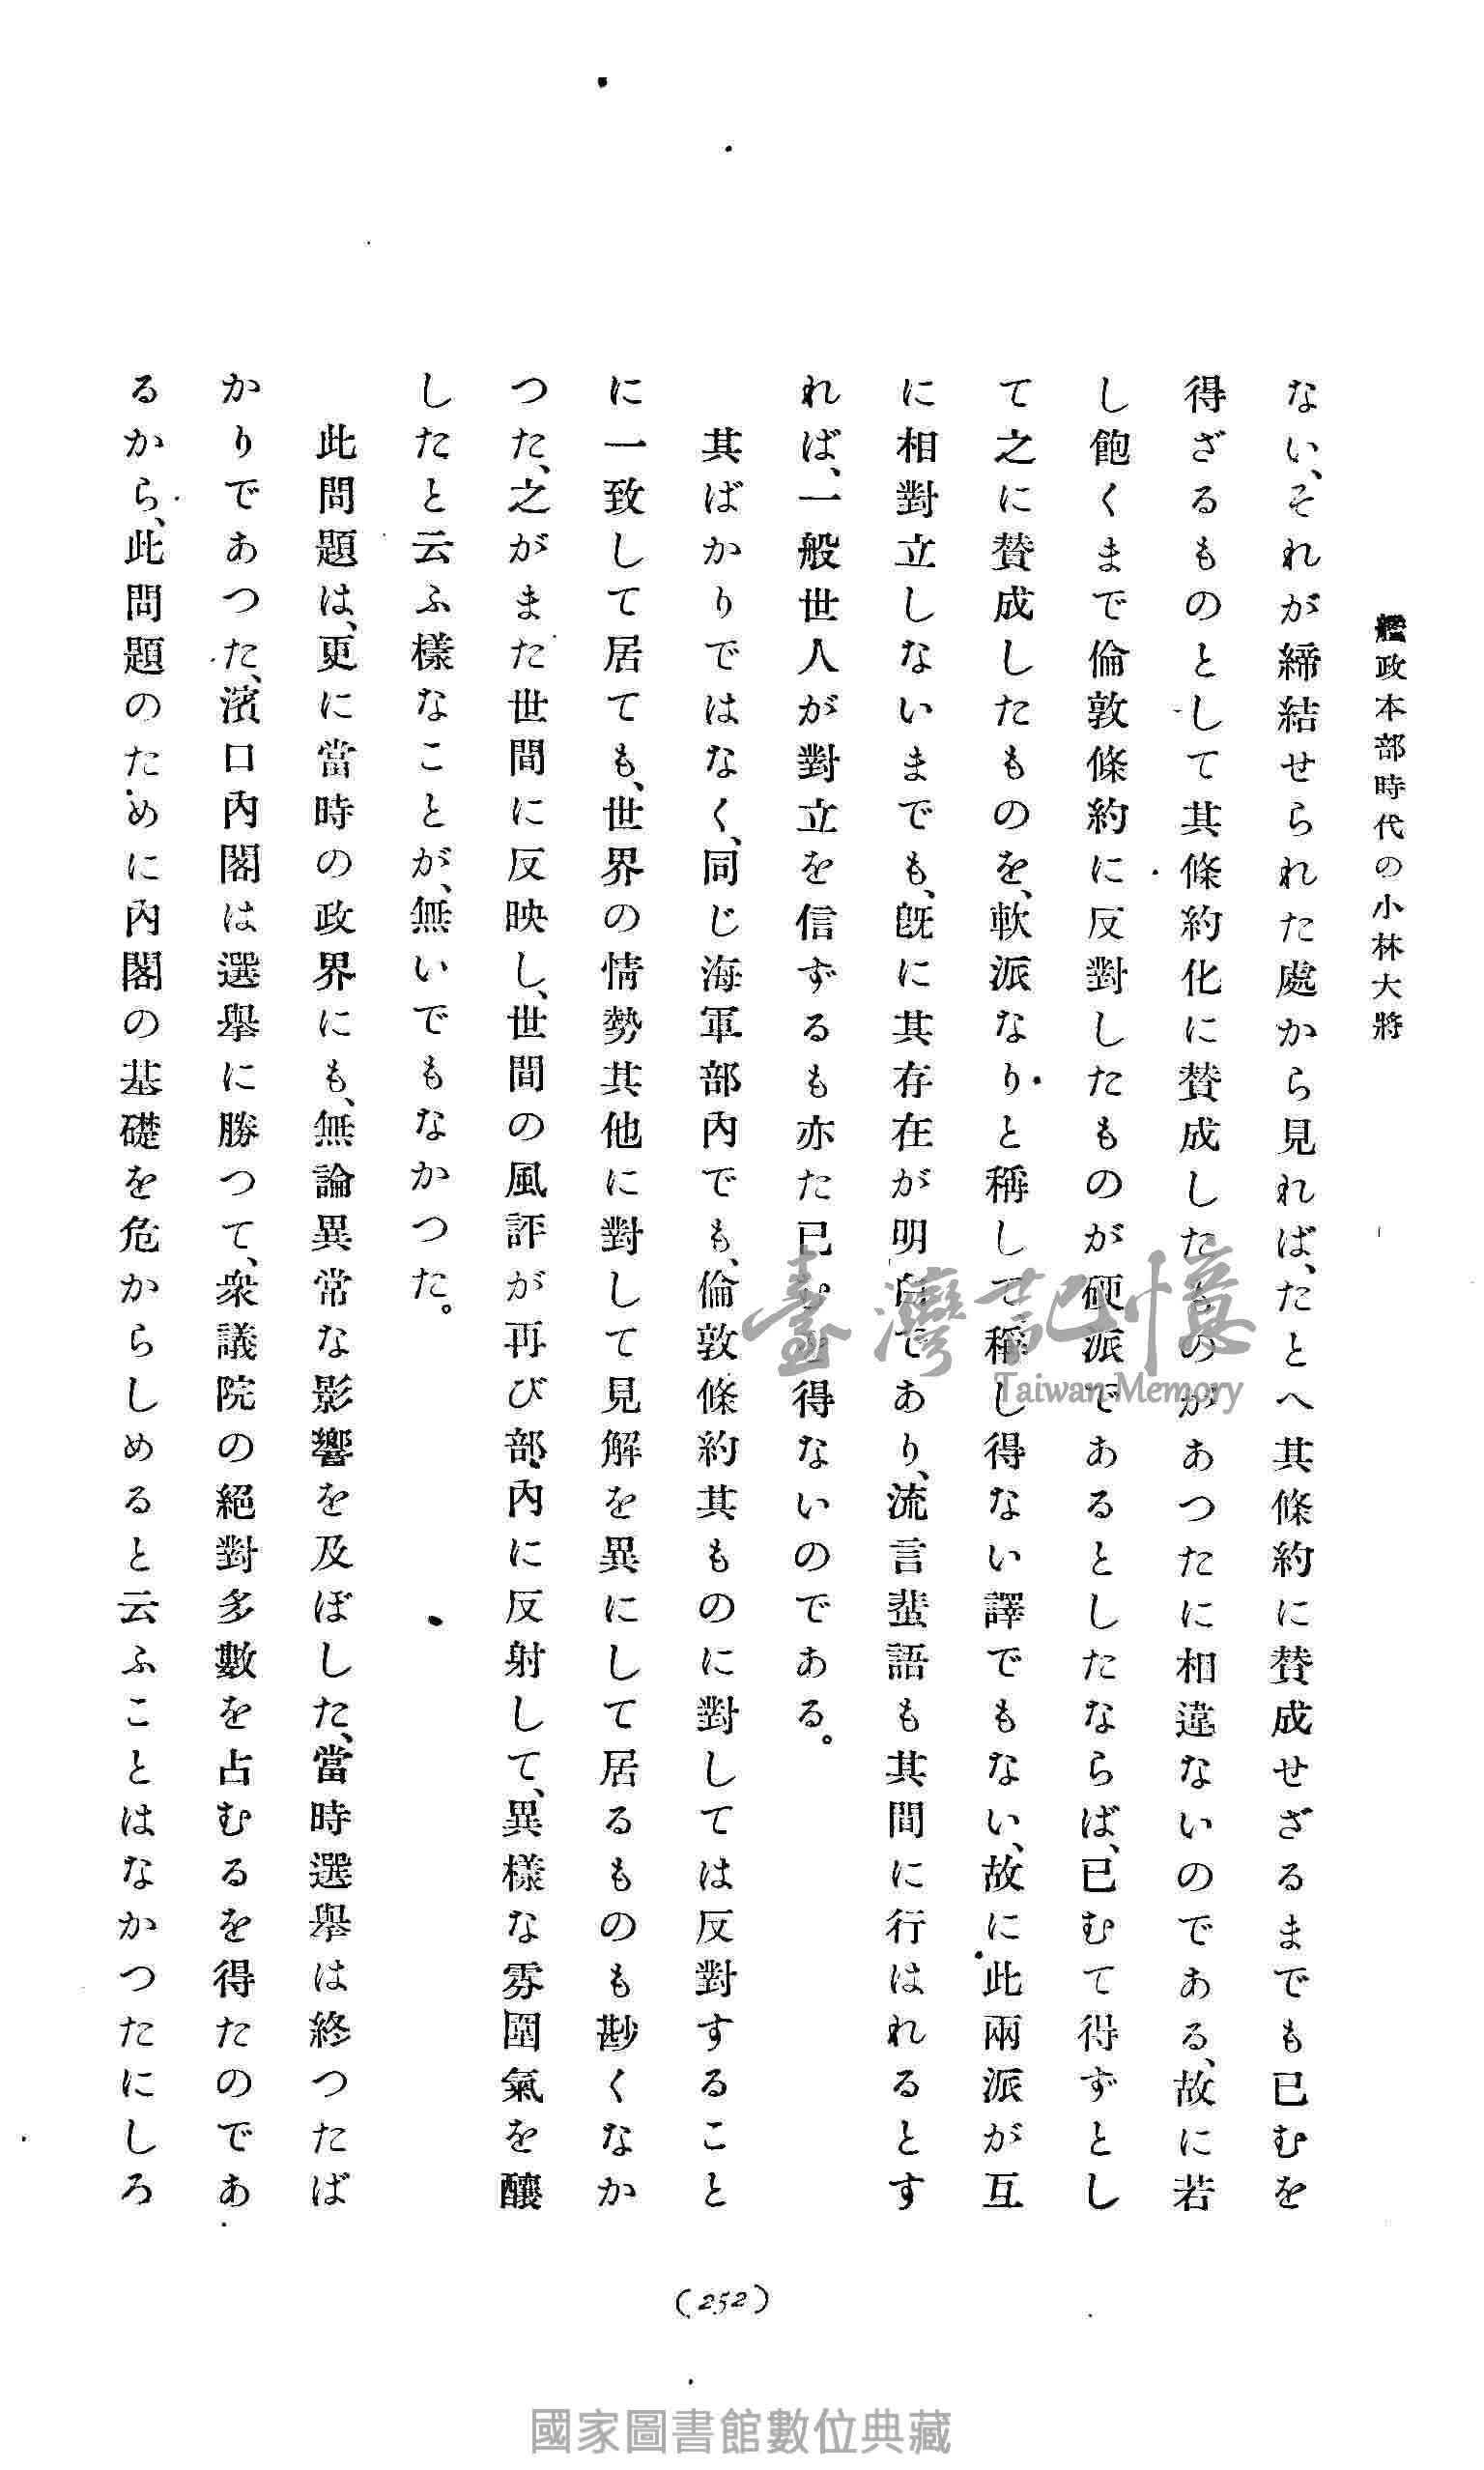 艦政本部時代の小林大將
ない、それが締結せられた處から見れば、たとへ其條約に賛成せざるまでも已むを
得ざるものとして其條約化に賛成したものがあつたに相違ないのである、故に若
し飽くまで倫敦條約に反對したものが硬派であるとしたならば、已むて得ずとし
て之に賛成したものを、軟派なりと稱して稱し得ない譯でもない、故に此兩派が互
に相對立しないまでも、旣に其存在が明白であり、流言蜚語も其間に行はれるとす
れば、一般世人が對立を信ずるも亦た已むを得ないのである。
其ばかりではなく、同じ海軍部內でも、倫敦條約其ものに對しては反對すること
に一致して居ても、世界の情勢其他に對して見解を異にして居るものも尠くなか
つた、之がまた世間に反映し、世間の風評が再び部內に反射して、異樣な雰圍氣を釀
したと云ふ樣なことが、無いでもなかつた。
此問題は、更に當時の政界にも、無論異常な影響を及ぼした、當時選擧は終つたば
かりであつた、濱口內閣は選擧に勝つて、衆議院の絕對多數を占むるを得たのであ
るから、此問題のために內閣の基礎を危からしめると云ふことはなかつたにしろ
(252)
臺灣記憶
Taiwan Memory
國家圖書館數位典藏